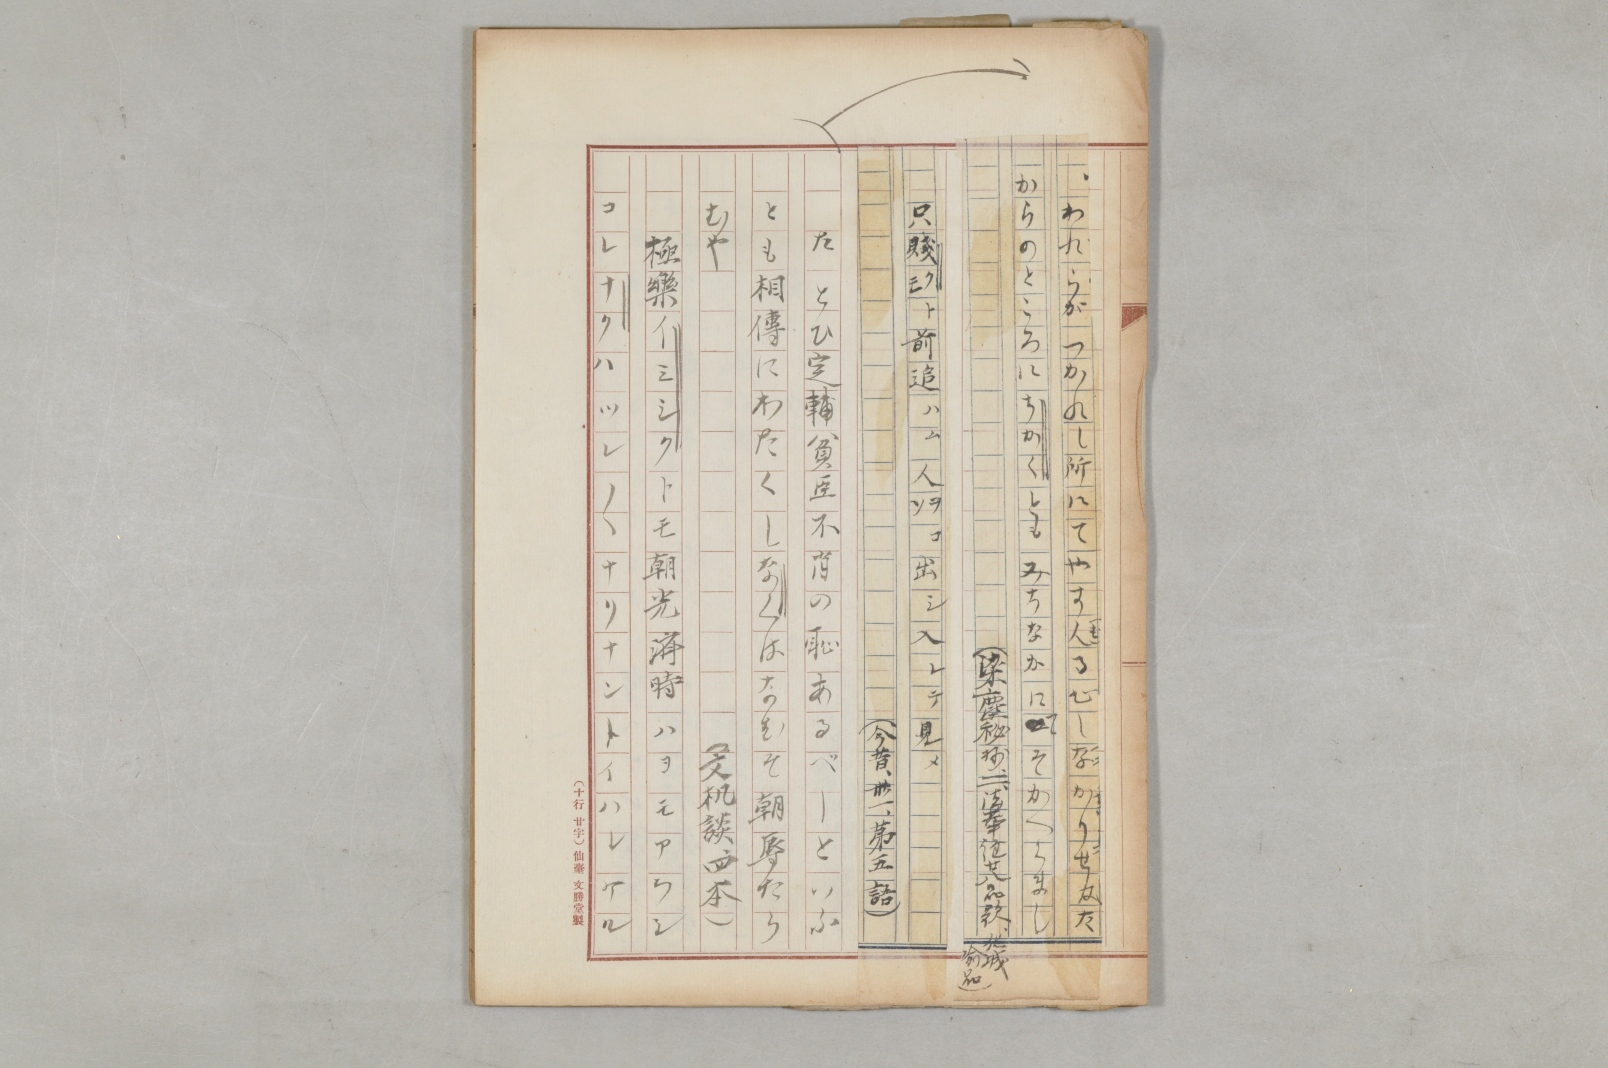 、われらがつかれし所にてやす人るむしなかりせはた
からのところにちかくともみちなかにてそかへらまし
(梁塵秘抄二、法華経廿八品歌、化城喩品)
只賤ミクト前追ハム人ヲソコ出シ入レテ見メ
(今昔卅一、第五話)
たとひ定輔貧臣不肖の恥あるべしといふ
とも相傳にわたくしなくはなむそ朝辱たら
むや
(文机談西本)
極樂イミシクトモ朝光海時ハヲモアラシ
コレナクハツレ〱ナリナントイハレケル
(十行 廿字) 仙臺 文勝堂製